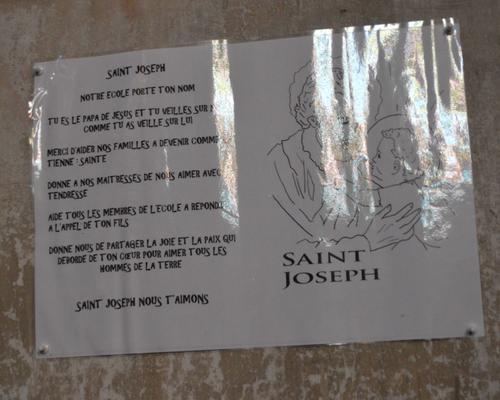 SAINT JOSEPH
NOTRE ECOLE PORTE TON NOM
TU ES LE PAPA DE JESUS ET TU VEILLES SUR
COMME TU AS VEILLE SUR LUI
MERCI D'AIDER NOS FAMILLES A DEVENIR COMME
TIENNE : SAINTE
DONNE A NOS MAITRESSES DE NOUS AIMER AVEC
TENDRESSE
AIDE TOUS LES MEMBRES DE L'ECOLE A REPONDRE
A L'APPEL DE TON FILS
DONNE NOUS DE PARTAGER LA JOIE ET LA PAIX QUI
DEBORDE DE TON CŒUR POUR AIMER TOUS LES
HOMMES DE LA TERRE
SAINT JOSEPH NOUS T'AIMONS
SAINT
JOSEPH